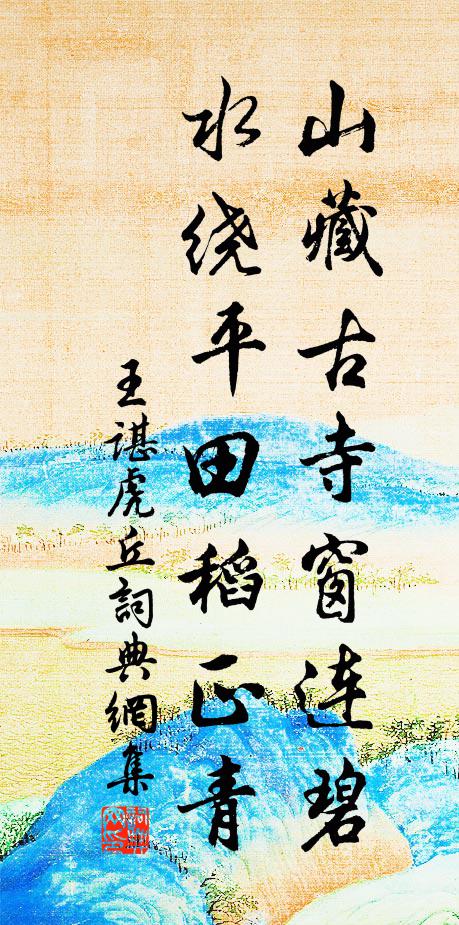 山藏古寺窗连碧
水绕平田稻正青
王谌虎丘詞典網集